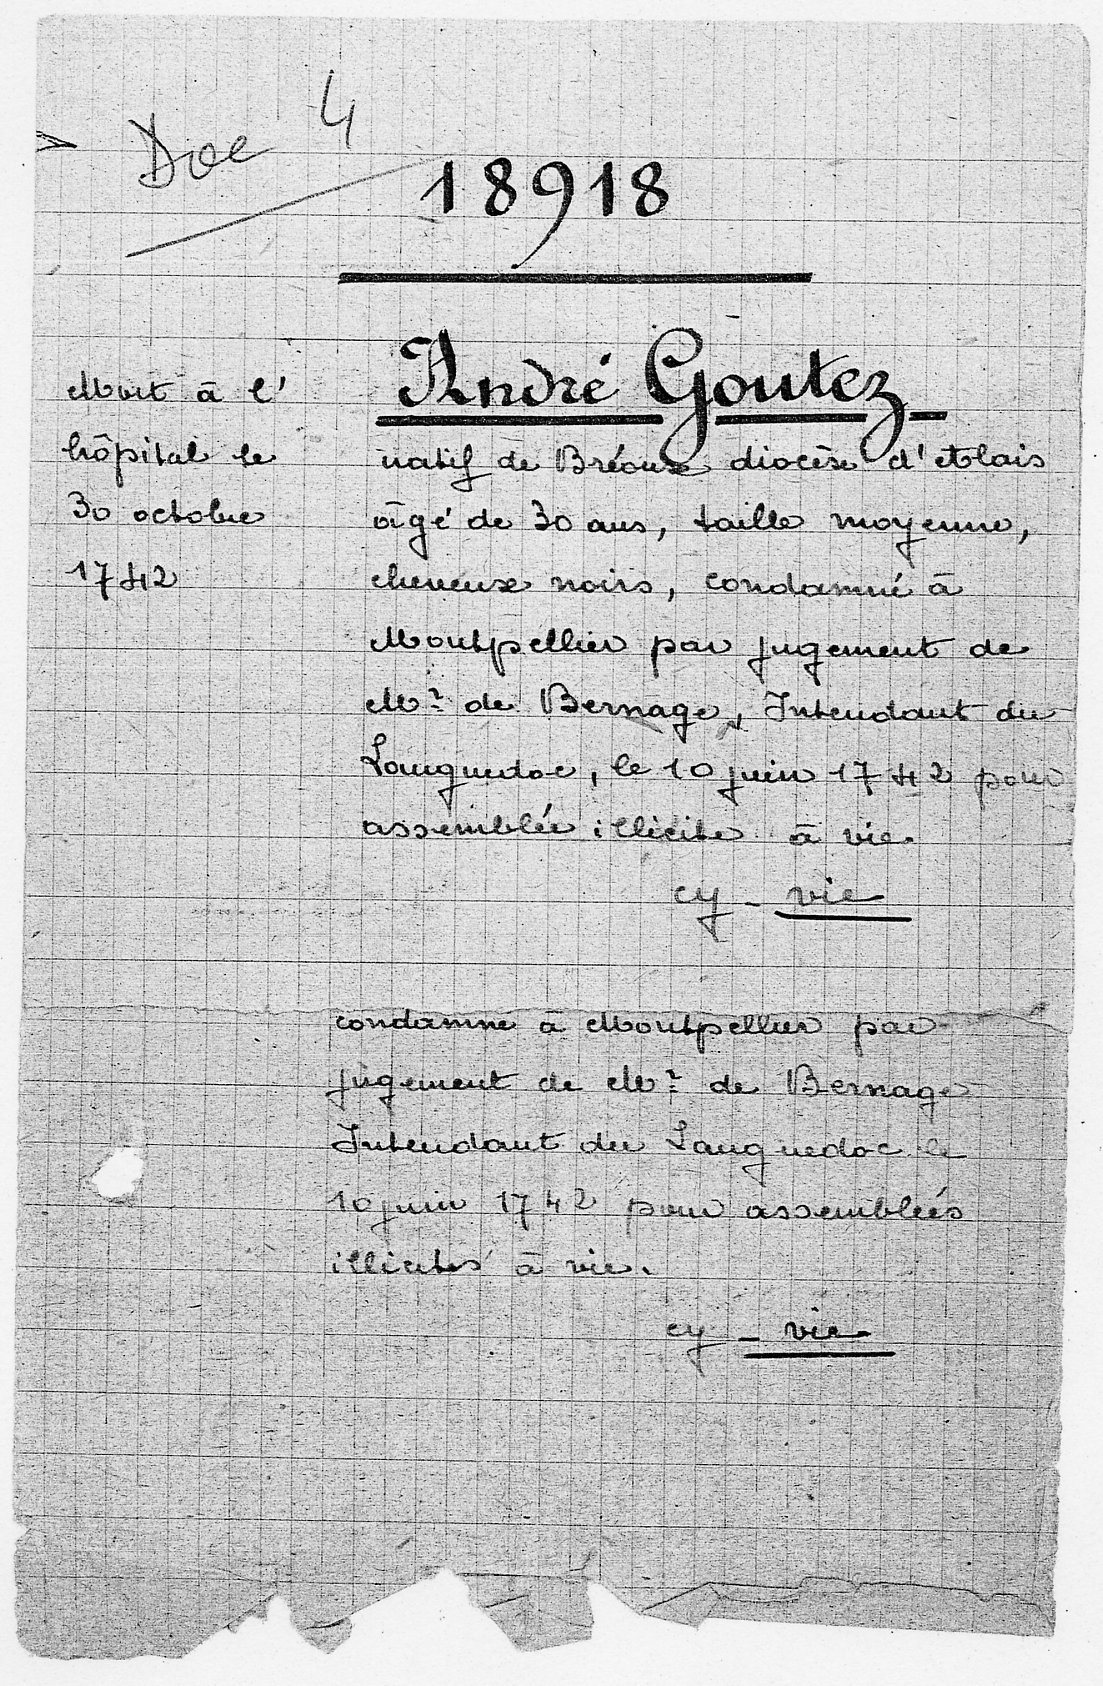 Doc 4
18918
André Goutez
Mort à l'
hôpital le
30 octobre
1742
natif de Bréoux diocèse d'Alais
âgé de 30 ans, taille moyenne,
cheveux noirs, condamné à
Montpellier par jugement de
Mr de Bernage, Intendant du
Languedoc, le 10 juin 1742 pour
assemblée illicite à vie
cy - vie
condamné à Montpellier par
jugement de Mr de Bernage
Intendant du Languedoc le
10 juin 1742 pour assemblées
illicites à vie.
cy - vie